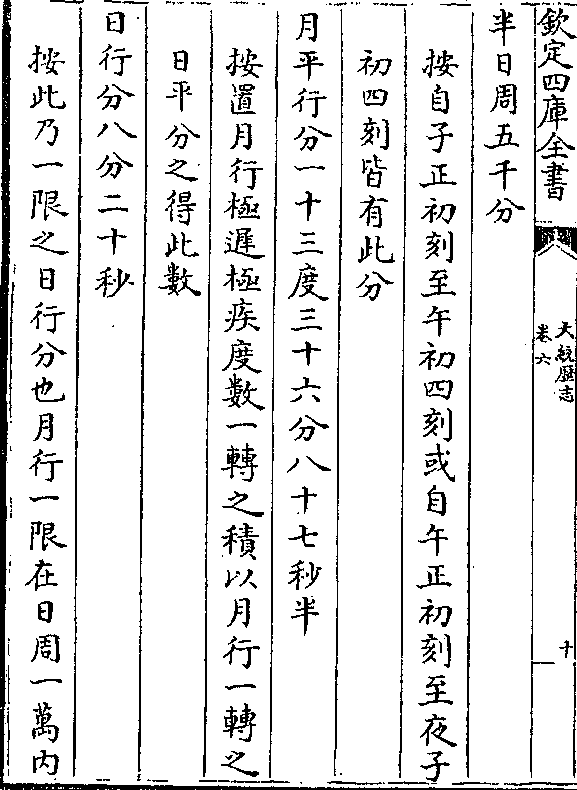 欽定四庫全書
天統歷志
卷六
十
半日周五千分
按自子正初刻至午初四刻或自午正初刻至夜子
初四刻皆有此分
月平行分一十三度三十六分八十七秒半
按置月行極遲極疾度數一轉之積以月行一轉之
日平分之得此數
日行分八分二十秒
按此乃一限之日行分也月行一限在日周一萬內